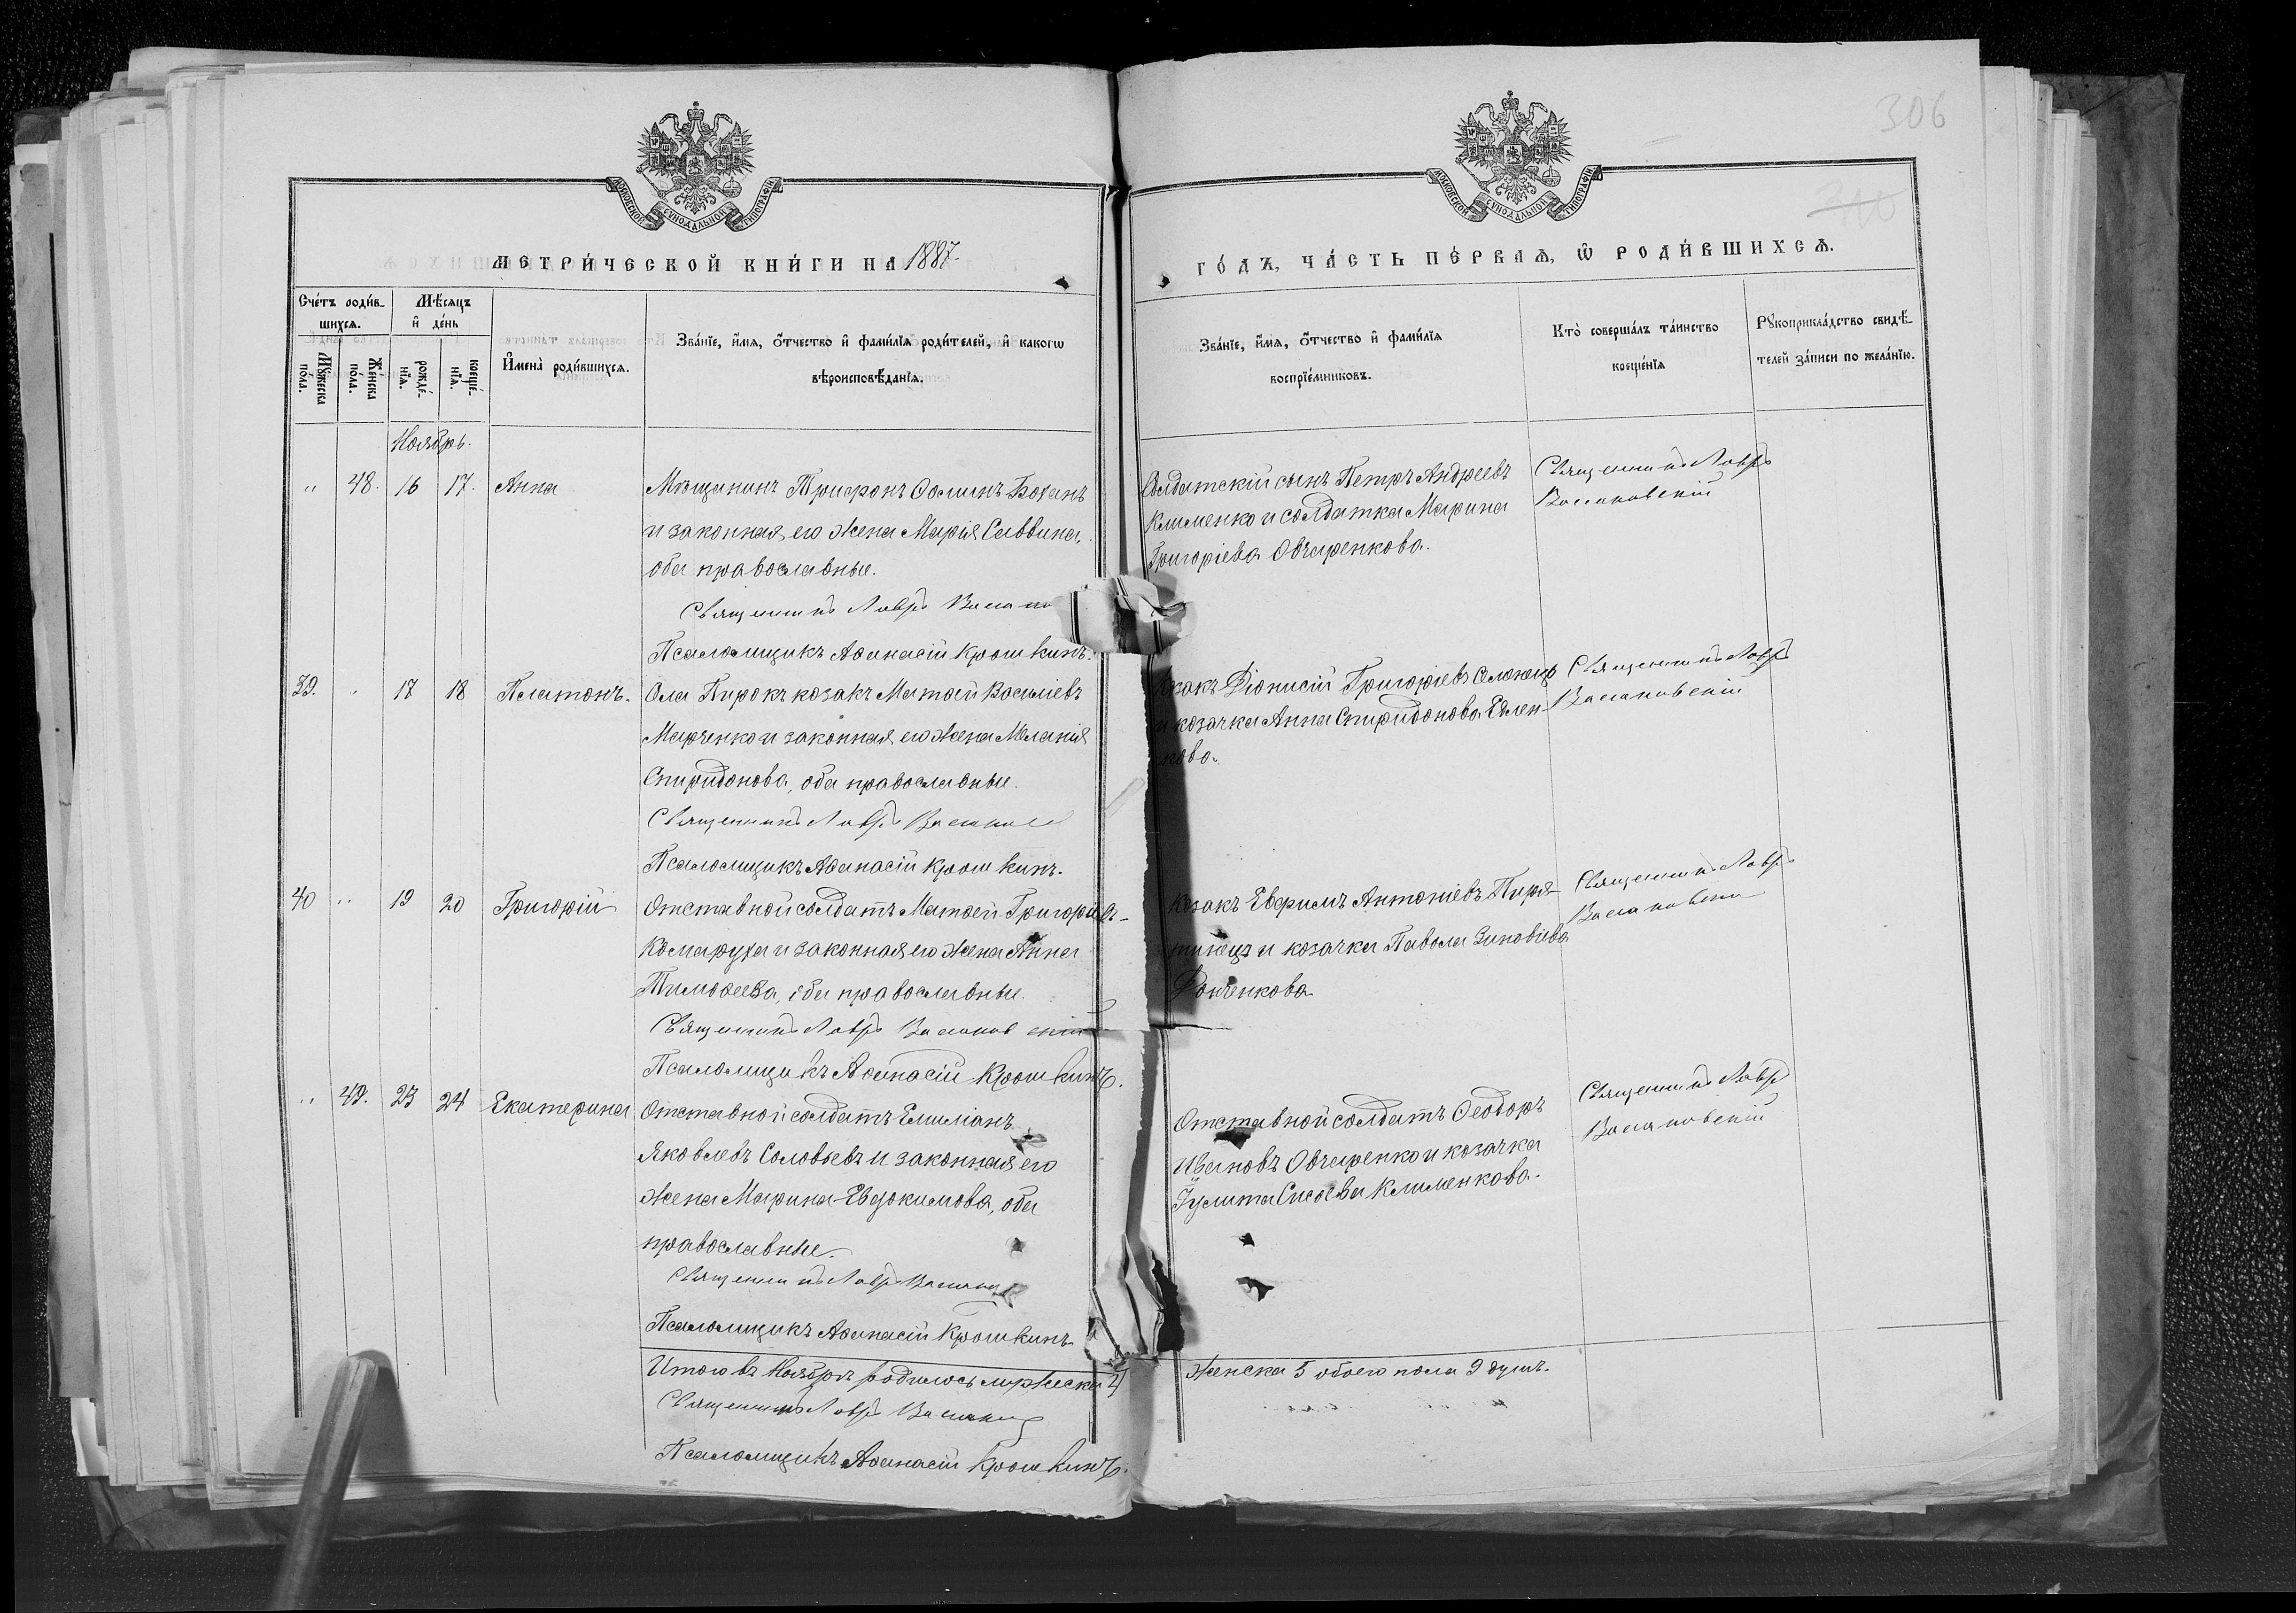 306
МОСКОВСКОЙ СУНОДАЛЬНОЙ ТИПОГРАФІИ
МОСКОВСКОЙ СУНОДАЛЬНОЙ ТИПОГРАФІИ
МЕТРИ́ЧЕСКОЙ КНИ́ГИ НА 1887.
ГО́ДЪ, ЧА́СТЬ ПЕ́РВАѦ, Ѽ РОДИ́ВШИХСѦ.
Сче́тъ роди́в-
шихсѧ.
Мꙋ́жеска по́ла.
Же́нска по́ла.
Мѣ́сѧцъ
и҆ де́нь
рожде́-
нїѧ.
креще́-
нїѧ.
И҆мена̀ роди́вшихсѧ.
Зва́нїе, и҆́мѧ, ѻ҆́тчество и҆ фами́лїѧ роди́телей, и҆ какогѡ
вѣроисповѣ́данїѧ.
Зва́нїе, и҆́мѧ, ѻ҆́тчество и҆ фами́лїѧ
воспрїе́мниковъ.
Кто̀ соверша́лъ та́инство
креще́нїѧ
Рꙋкоприкла́дство свидѣ́-
телей за́писи по жела́нїю.
Ноябрь.
" 48. 16 17. Анна
Мѣщанинъ Трифонъ Ѳоминъ Боханъ
и законная его жена Марія Саввина,
оба православные.
Священникъ Лавръ
Псаломщикъ Аѳанасій Крошкинъ.
Солдатскій сынъ Петръ Андреевъ
Клименко и солдатка Марина
Григоріева Овчаренкова.
Священникъ Лавръ
39. " 17 18 Платонъ.
Ола Пирокъ козакъ Матѳей Василіевъ
Марченко и законная его жена Меланія
Спиридонова, оба православные.
Священникъ Лавръ
Псаломщикъ Аѳанасій Крошкинъ.
Козакъ Діонисій Григоріевъ
и козачка Анна Спиридонова
кова.
Священникъ Лавръ
40 " 19 20 Григорій
Отставной солдатъ Матѳей Григоріевъ
Комаруха и законная его жена Анна
Тимоѳеева, оба православные.
Священникъ Лавръ
Псаломщикъ Аѳанасій Крошкинъ.
Козакъ Евфимъ Антоніевъ Пиря-
тинецъ и козачка Павола Зиновіева
Донченкова
Священникъ Лавръ
" 49. 23 24 Екатерина
Отставной солдатъ Емиліанъ
Яковлевъ Соловьевъ и законная его
жена Марина Евдокимова, оба
православные.
Священникъ Лавръ
Псаломщикъ Аѳанасій Крошкинъ
Отставной солдатъ Ѳеодоръ
Ивановъ Овчаренко и козачка
Іулита Сисоева Клименкова.
Священникъ Лавръ
Итого въ Ноябрѣ родилось мужеска 4
женска 5 обоего пола 9 душъ.
Священникъ Лавръ
Псаломщикъ Аѳанасій Крошкинъ.